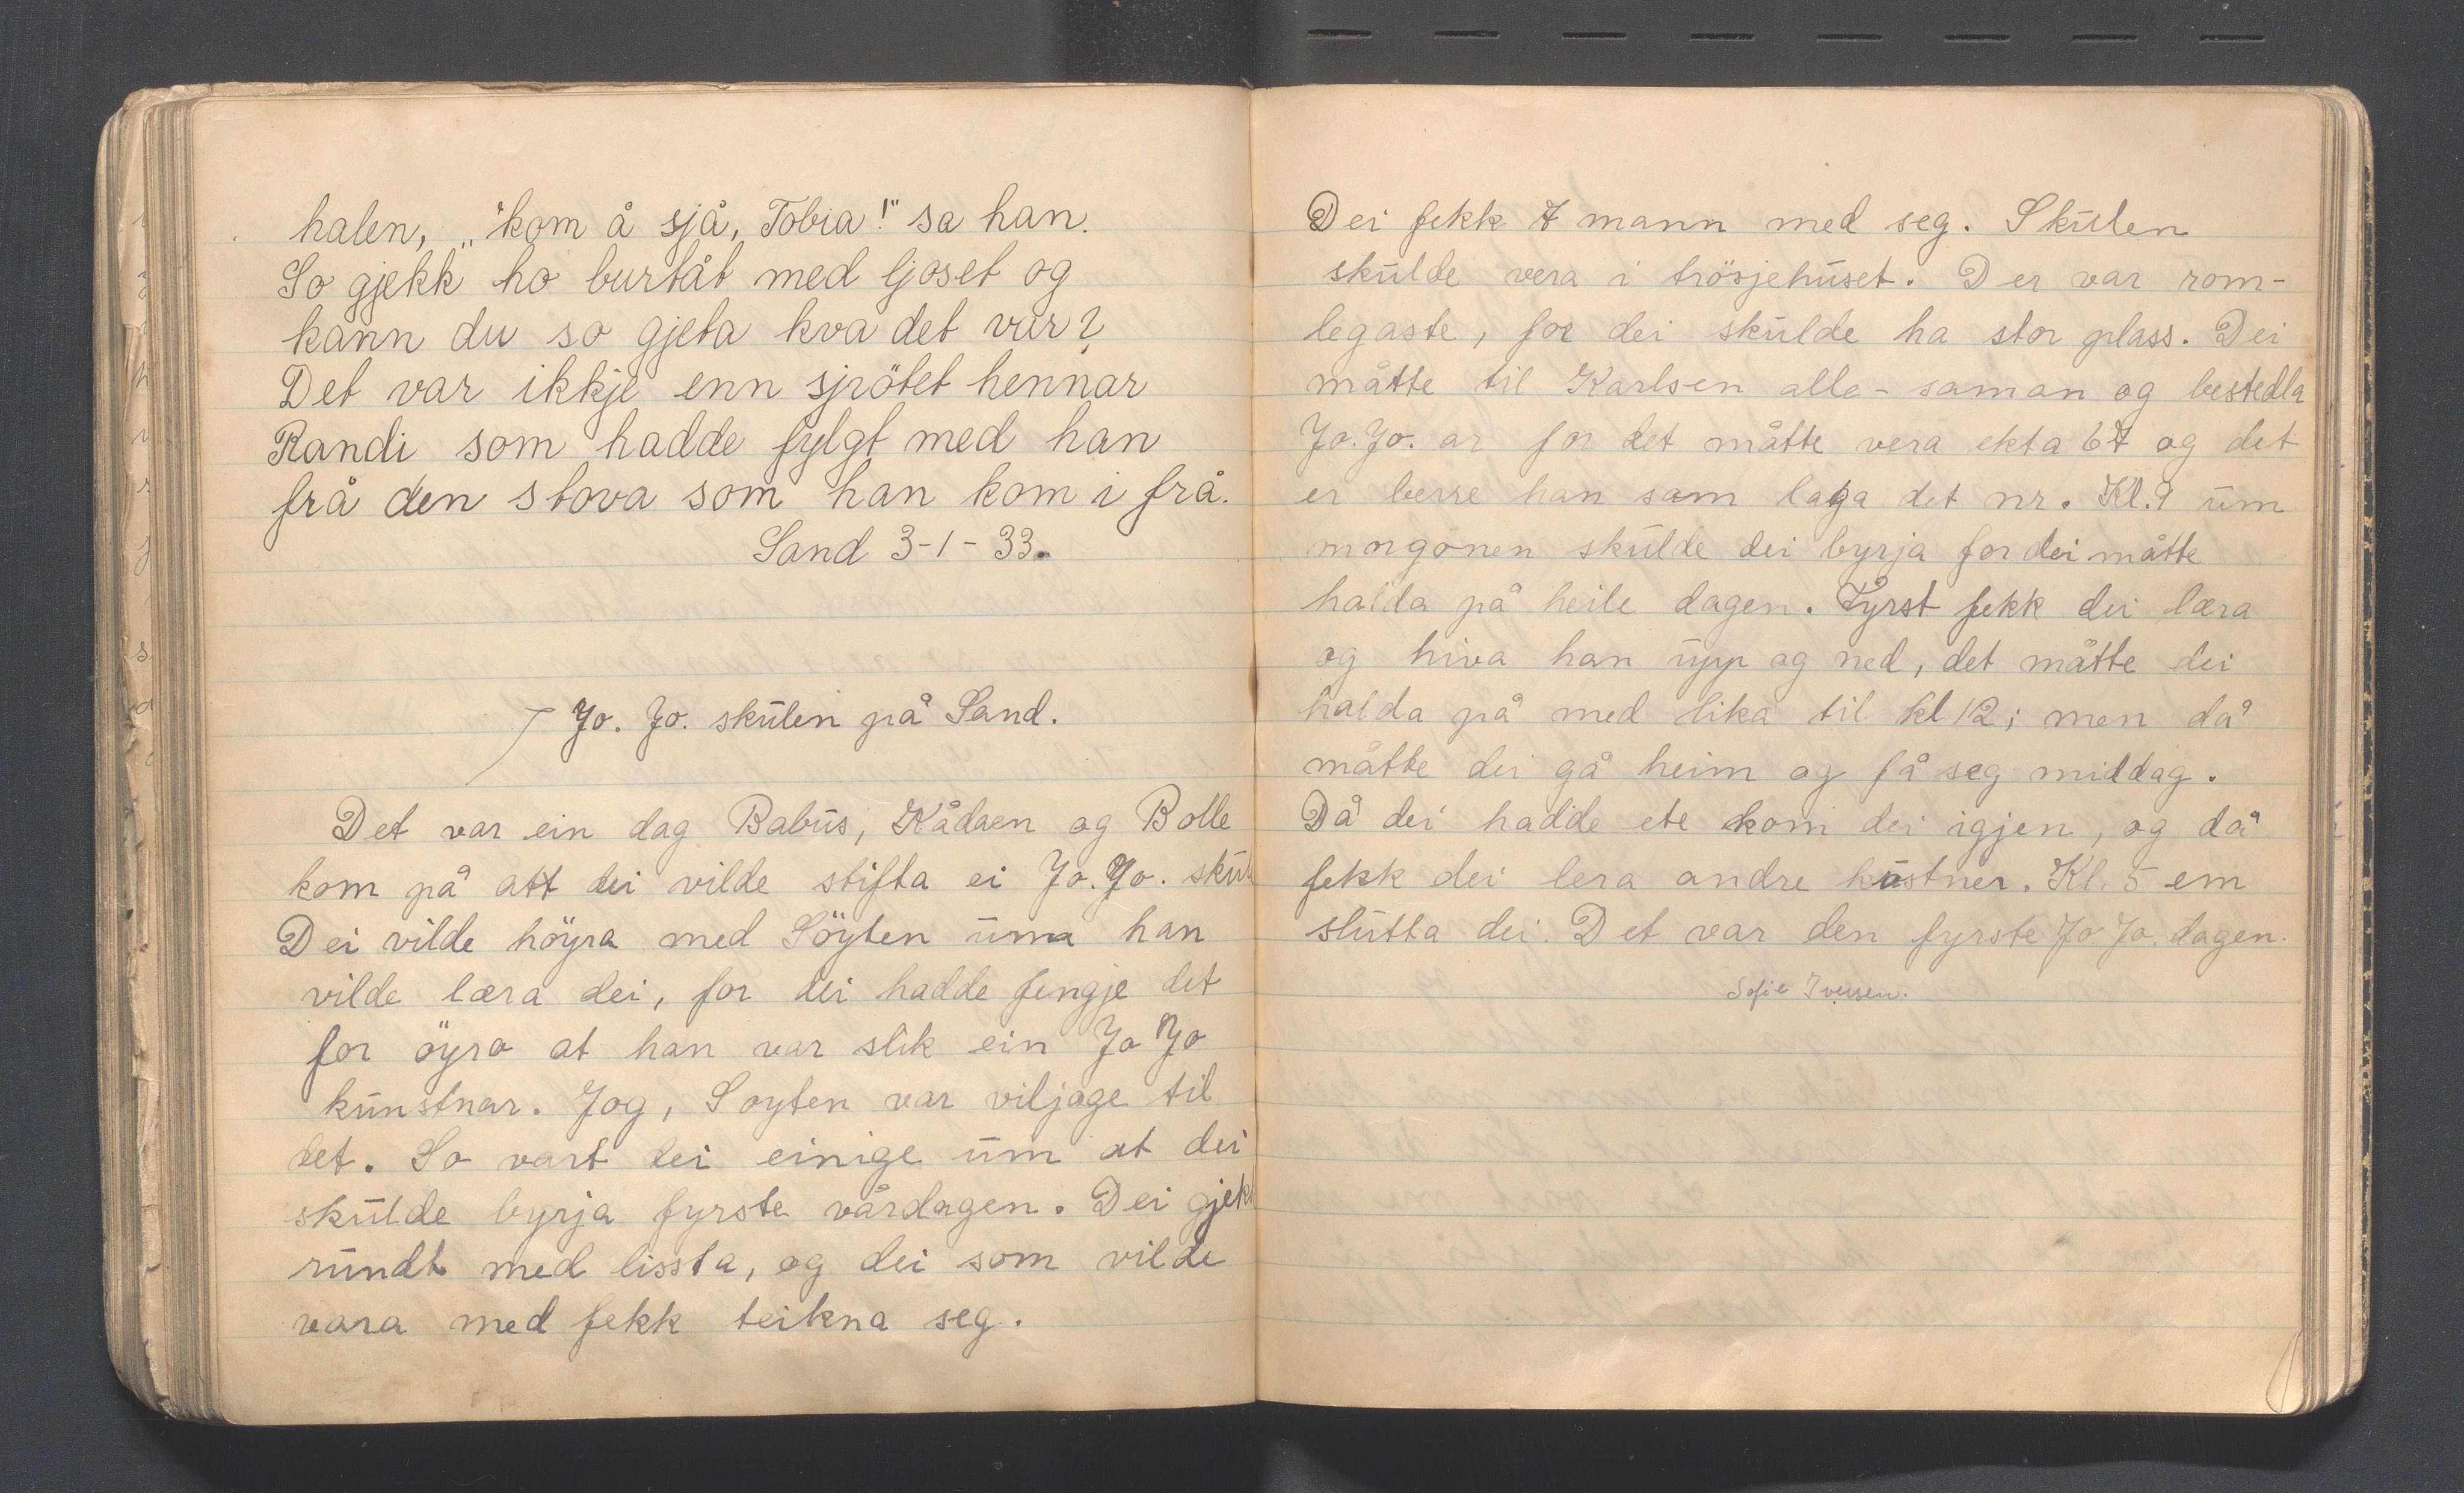 halen, „kom å sjå, Tobia!" sa han.
So gjekk ho burtåt med ljoset og
kann du so gjeta kva det var?
Det var ikkje enn sjrötet hennar
Randi som hadde fylgt med han
frå den stova som han kom i frå.
Sand 3-1-33.
Jo. Jo. skulen på Sand.
Det var ein dag Babus, Kådaen og Bolle
kom på att dei vilde stifta ei Jo. Jo. skul
Dei vilde höyra med Söyten uma han
vilde læra dei, for dei hadde fengje det
for öyra at han var slik ein Jo Jo
kunstnar. Jog, Soyten var viljage til
det. So vart dei einige um at dei
skulde byrja fyrste vårdagen. Dei gjekk
rundt med lissta, og dei som vilde
vara med fekk teikna seg.
Dei fekk 7 mann med seg. Skulen
skulde vera i trösjehuset. Der var rom-
legaste, for dei skulde ha stor plass. Dei
måtte til Karlsen alle-saman og bestedla
Jo. Jo. ar for det måtte vera ekta 67 og det
er berre han som laga det nr. Kl. 9 um
morgonen skulde dei byrja for dei måtte
halda på heile dagen. Fyrst fekk dei læra
og hiva han upp og ned, det måtte dei
halda på med lika til kl 12; men då
måtte dei gå heim og få seg middag.
Då dei hadde ete kom dei igjen, og då
fekk dei lera andre kustner. Kl. 5 em
slutta dei. Det var den fyrste Jo Jo. dagen.
Sofie Iversen.